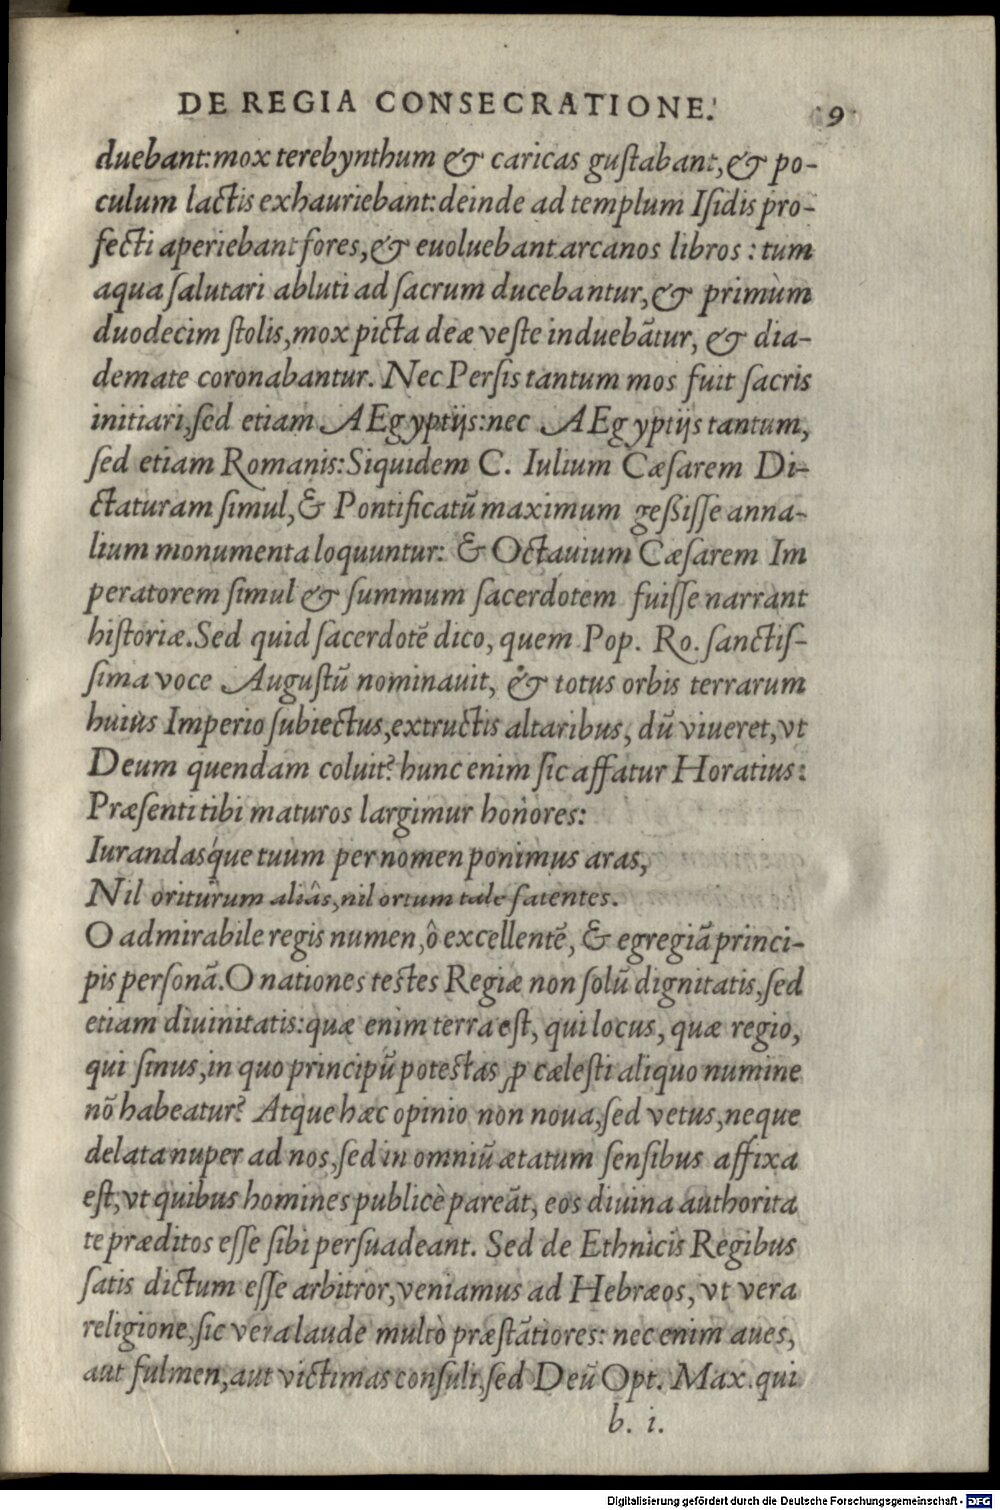 DE REGIA CONSECRATIONE. 9
duebant:mox terebynthum & caricas guſtabant,& po-
culum lactis exhauriebant:deinde ad templum Iſidis pro-
fecti aperiebant fores,& euoluebant arcanos libros : tum
aqua ſalutari abluti ad ſacrum ducebantur,& primùm
duodecim ſtolis,mox picta deæ veſte induebãtur, & dia-
demate coronabantur. Nec Perſis tantum mos fuit ſacris
initiari,ſed etiam AEgyptijs:nec AEgyptijs tantum,
ſed etiam Romanis:Siquidem C. Iulium Cæſarem Di-
ctaturam ſimul,& Pontificatũ maximum geßiſſe anna-
lium monumenta loquuntur: & Octauium Cæſarem Im
peratorem ſimul & ſummum ſacerdotem fuiſſe narrant
hiſtoriæ.Sed quid ſacerdotẽ dico, quem Pop. Ro. ſanctiſ-
ſima voce Auguſtũ nominauit, & totus orbis terrarum
huius Imperio ſubiectus,extructis altaribus, dũ viueret,vt
Deum quendam coluit? hunc enim ſic affatur Horatius:
Præſenti tibi maturos largimur honores:
Iurandasque tuum per nomen ponimus aras,
Nil oriturum aliâs,nil ortum tale fatentes.
O admirabile regis numen,ô excellentẽ, & egregiã princi-
pis perſonã.O nationes teſtes Regiæ non ſolũ dignitatis,ſed
etiam diuinitatis:quæ enim terra eſt, qui locus, quæ regio,
qui ſinus,in quo principũ poteſtas ꝓ cæleſti aliquo numine
nõ habeatur? Atque hæc opinio non noua,ſed vetus,neque
delata nuper ad nos,ſed in omniũ ætatum ſenſibus affixa
eſt,vt quibus homines publicè pareãt, eos diuina authorita
te præditos eſſe ſibi perſuadeant. Sed de Ethnicis Regibus
ſatis dictum eſſe arbitror,veniamus ad Hebræos, vt vera
religione,ſic vera laude multò præſtãtiores: nec enim aues,
aut fulmen,aut victimas conſulit,ſed Deũ Opt. Max.qui
b. i.
Digitalisierung gefördert durch die Deutsche Forschungsgemeinschaft - DFG